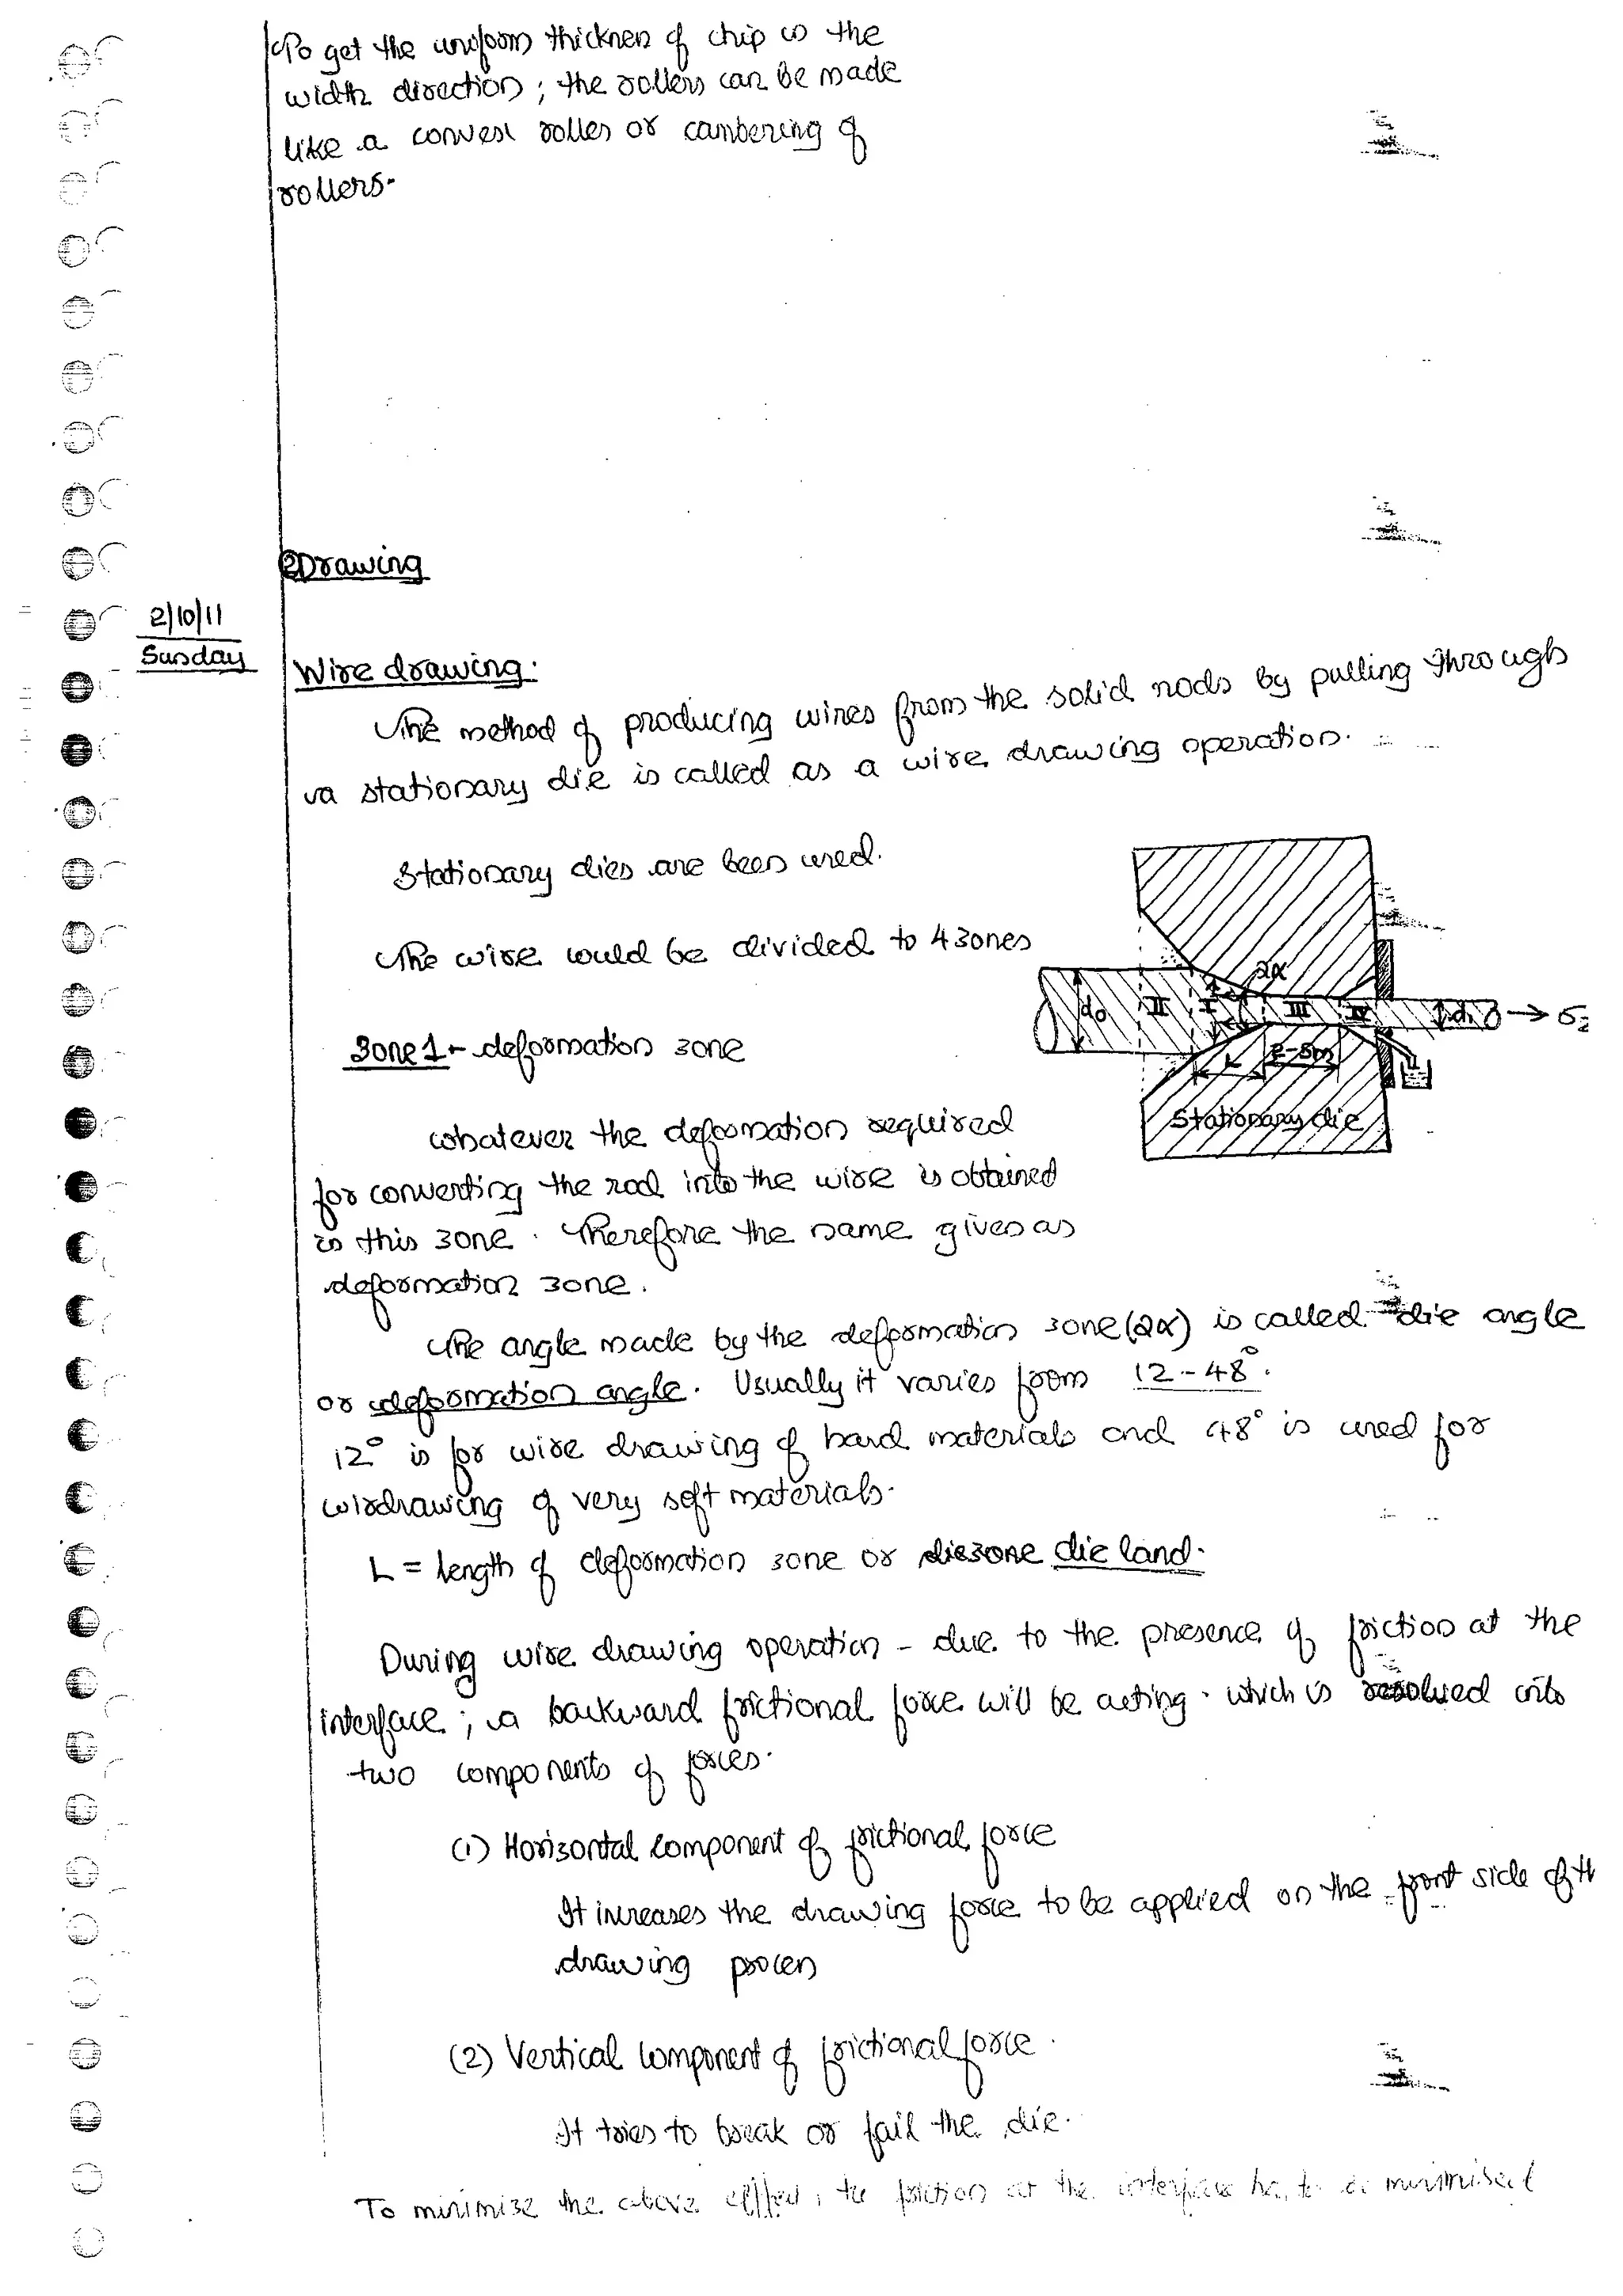 To get the uniform thickness of chip in the
width direction; the rollers can be made
like a convex roller or cambering of
rollers.
② Drawing
2/10/11
Sunday
Wire drawing:
The method of producing wires from the solid rods by pulling through
a stationary die is called as a wire drawing operation.
Stationary dies are been used.
The wire would be divided to 4 zones
2α
d₀ II I III IV d₁ → σ₂
L 2-5m
Stationary die
Zone 1 - deformation zone
Whatever the deformation required
for converting the rod into the wire is obtained
in this zone. Therefore the name given as
deformation zone.
The angle made by the deformation zone (2α) is called die angle
or deformation angle. Usually it varies from 12-48°.
12° is for wire drawing of hard materials and 48° is used for
wirdrawing of very soft materials.
L = length of deformation zone or diezone die land.
During wire drawing operation - due to the presence of friction at the
interface; a backward frictional force will be acting. which is resolved into
two components of forces.
(1) Horizontal component of frictional force
It increases the drawing force to be applied on the front side of th
drawing process
(2) Vertical component of frictional force.
It tries to break or fail the die.
To minimize the above effect, the friction at the interface has to be minimised